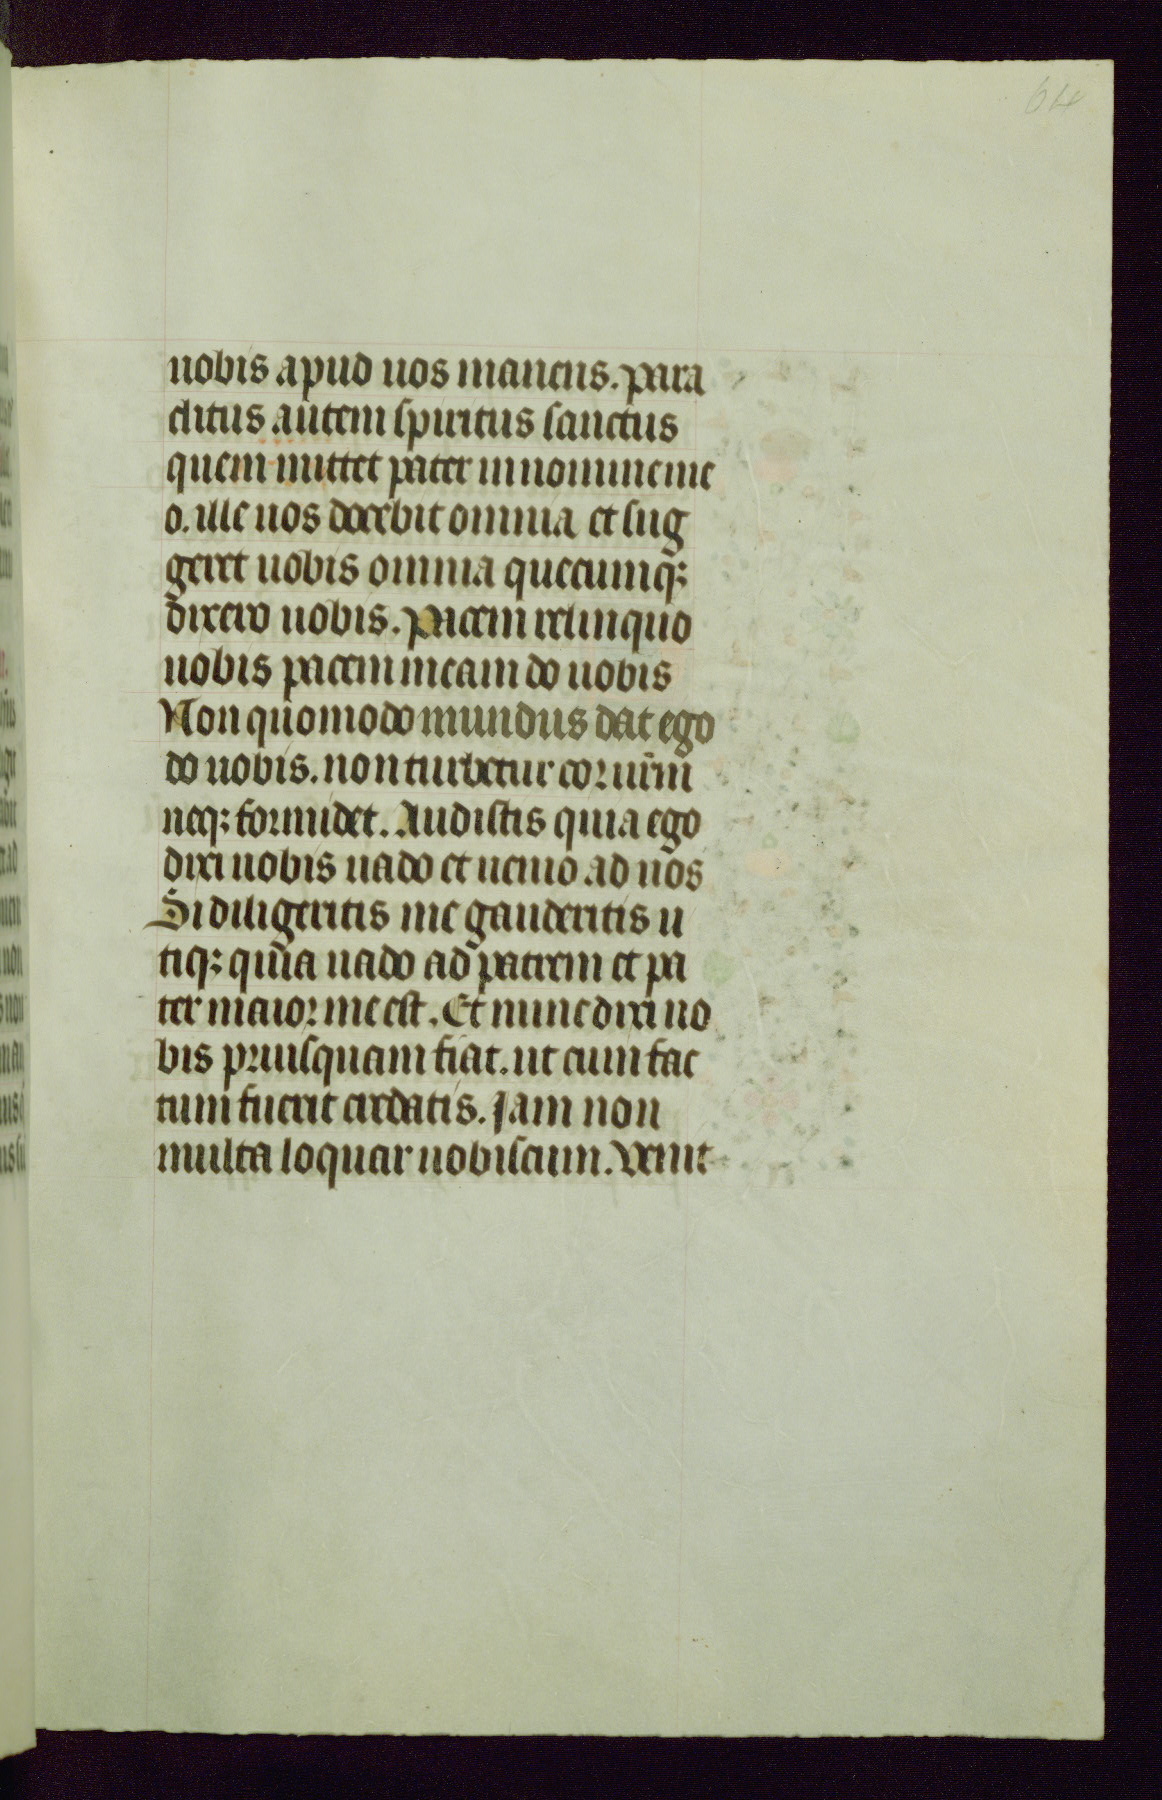 64
uobis apud uos manens. para
clitus autem spiritus sanctus
quem mittet pater in nomine me
o. ille uos docebit omnia et sug
geret uobis omnia quecumq;
dixero uobis. Pacem relinquo
uobis pacem meam do uobis
Non quomodo mundus dat ego
do uobis. non turbetur cor ur̃m
neq; formidet. Audistis quia ego
dixi uobis uado et uenio ad uos
Si diligeritis me gauderitis u
tiq; quia uado ad patrem et pa
ter maior me est. Et nunc dixi uo
bis priusquam fiat. ut cum fac
tum fuerit credatis. Jam non
multa loquar uobiscum. Venit